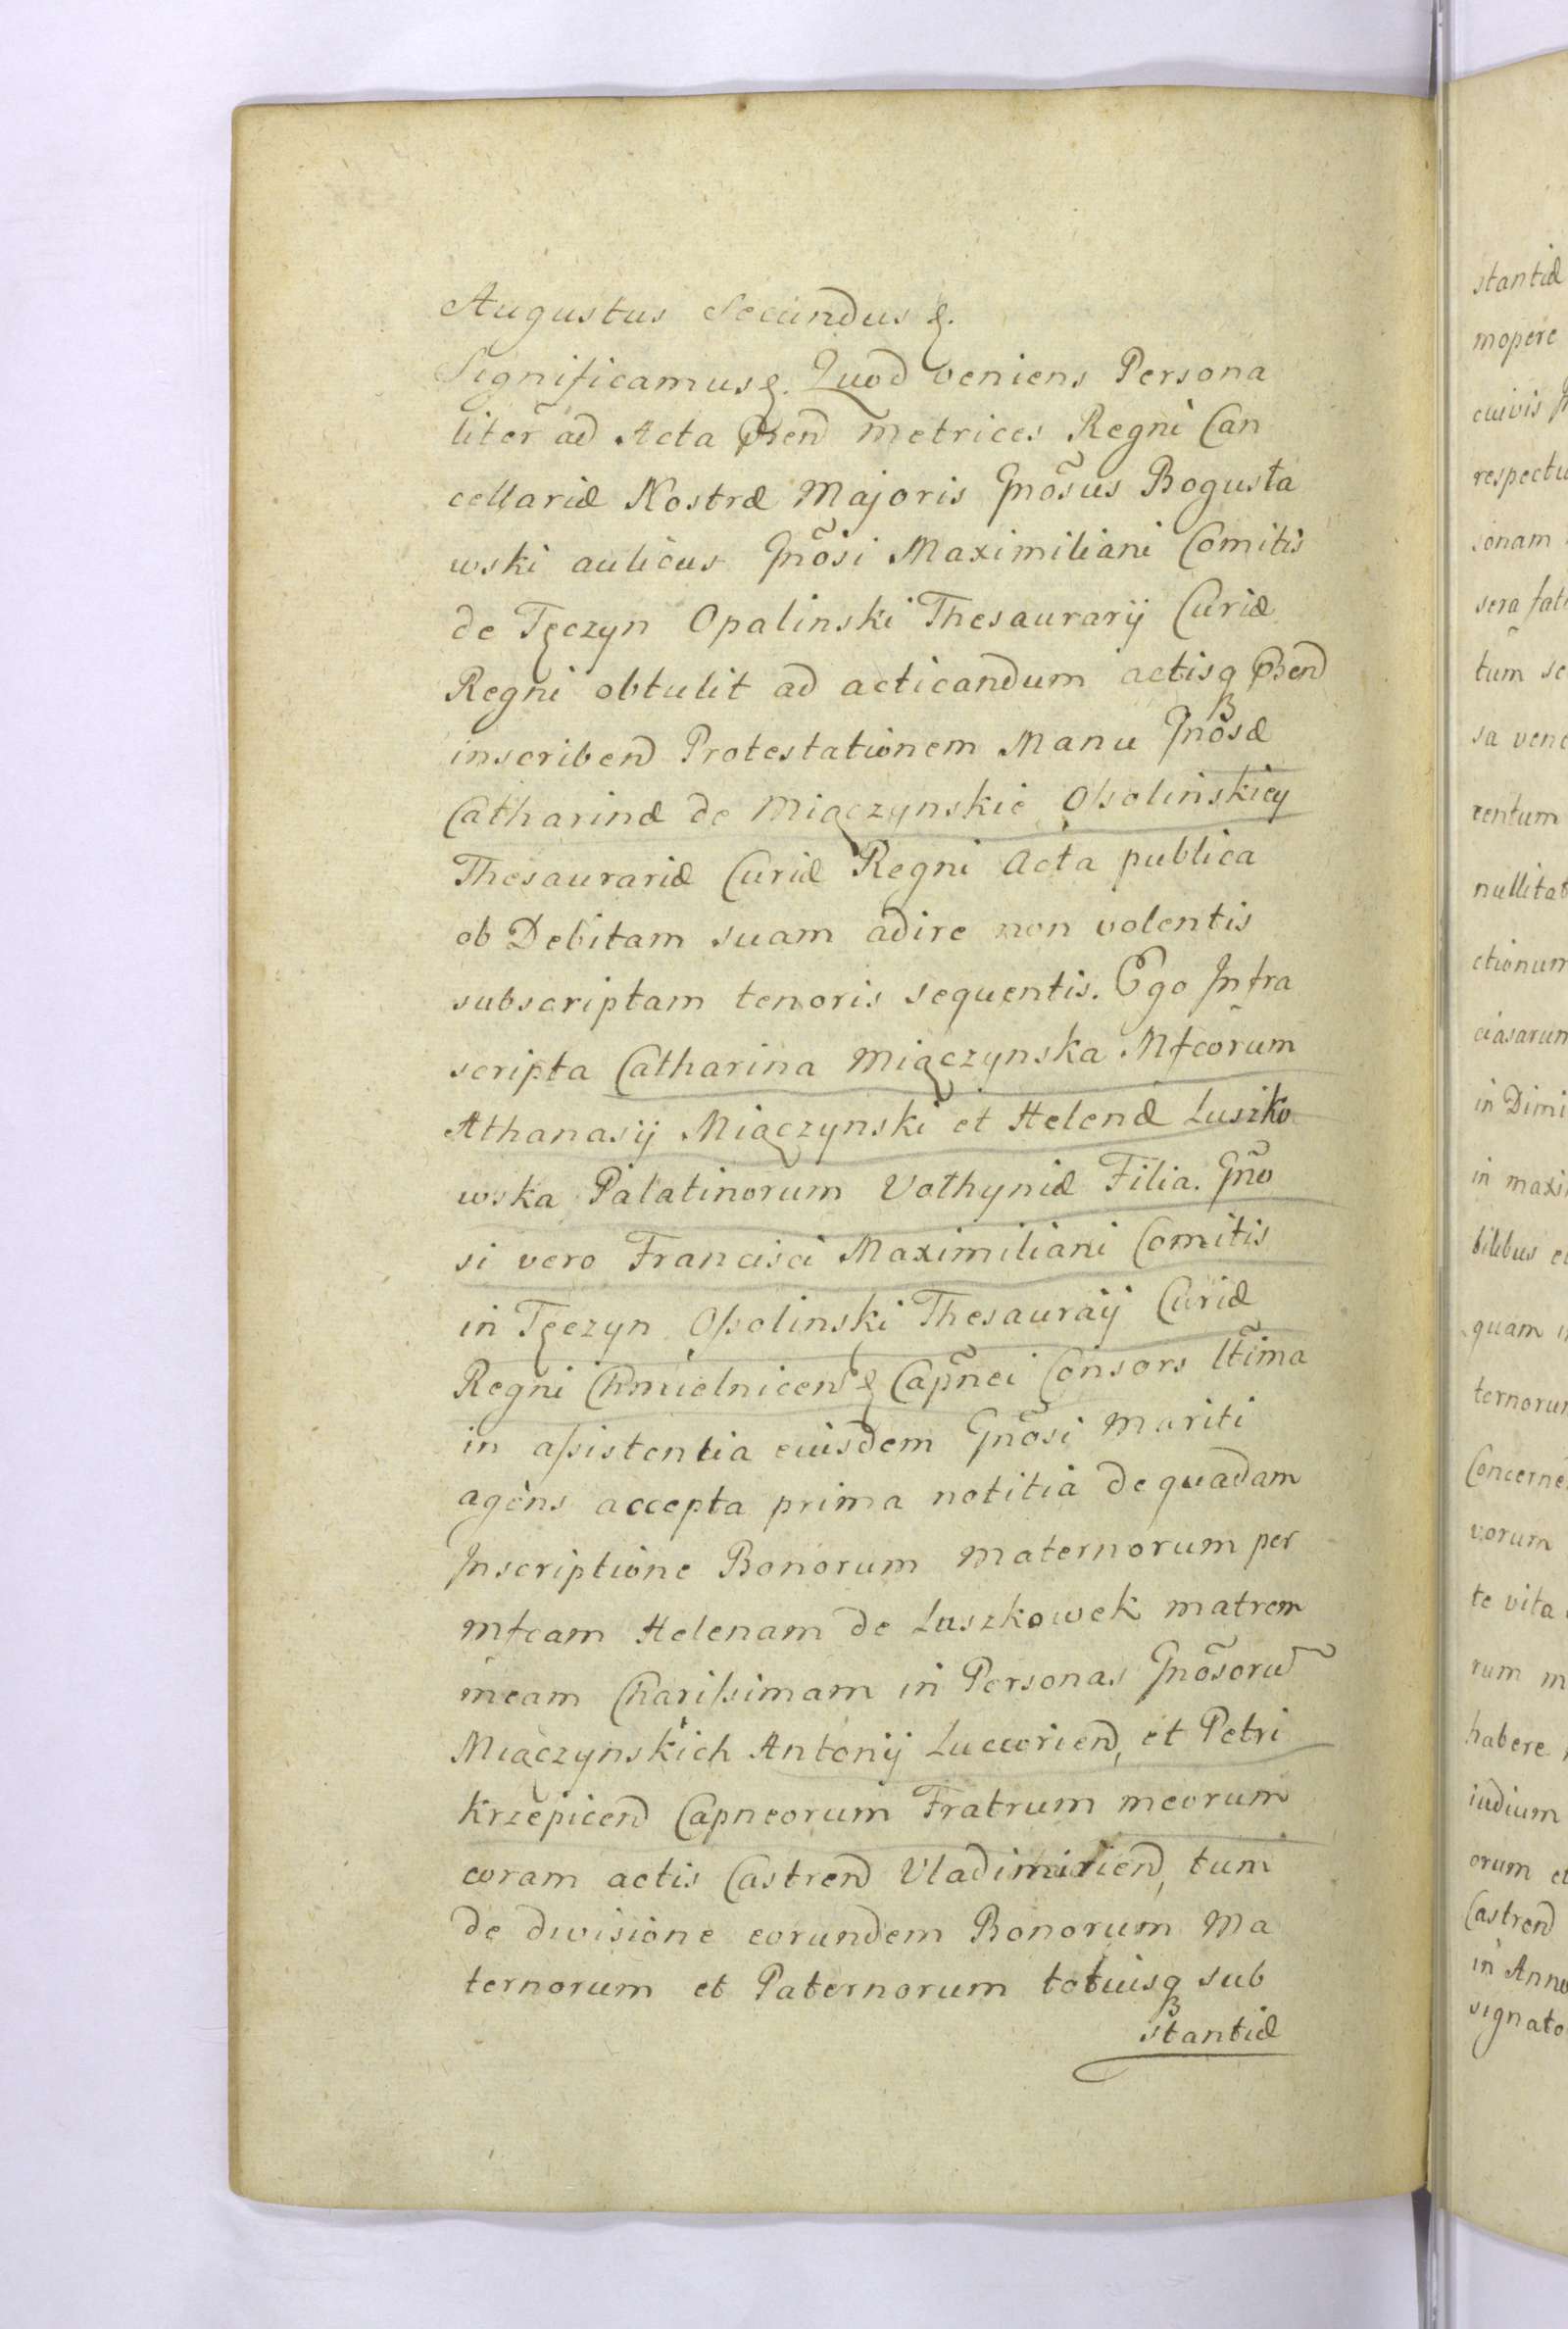 Augustus Secundus &.
Significamus &. Quod veniens Persona
liter ad Acta Pnen metrices Regni Can
cellariæ Nostræ Majoris Gnõsus Bogusta
wski aulicus Gnõsi Maximiliani Comitis
de Tęczyn Opalinski Thesaurarij Curiæ
Regni obtulit ad acticandum actisq Pnen
inscriben Protestationem Manu Gnõsæ
Catharinæ de Miączynskie Ossolińskiey
Thesaurariæ Curiæ Regni Acta publica
ob Debitam suam adire non volentis
subscriptam tenoris sequentis. Ego Infra
scripta Catharina Miączynska Mfcorum
Athanasij Miączynski et Helenæ Luszko
wska Palatinorum Vothyniæ Filia. Gño
si vero Francisci Maximiliani Comitis
in Tęczyn Ossolinski Thesauraij Curiæ
Regni Chmielnicen & Capñei Consors ltĩma
in assistentia eiusdem Gnõsi Mariti
agens accepta prima notitia de quadam
Inscriptione Bonorum Maternorum per
mfcam Helenam de Luszkowek matrem
meam Charissimam in Personas Gnõsorũ
Miączynskich Antonij Luccorien, et Petri
Krzepicen Capneorum Fratrum meorum
coram actis Castren Vladimirien, tum
de divisione eorundem Bonorum Ma
ternorum et Paternorum totiusq sub
stantiæ
stantiæ
mopere
cuivis
respectu
sonam
sera
tum
sa
rentum
in
in
quam
vorum
te vita
rum
habere
iudium
orum
Castren
in Anno